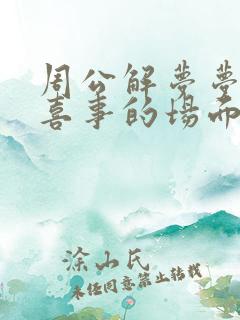 周公解梦梦
喜事的场面
涂山氏
未经同意禁止转载